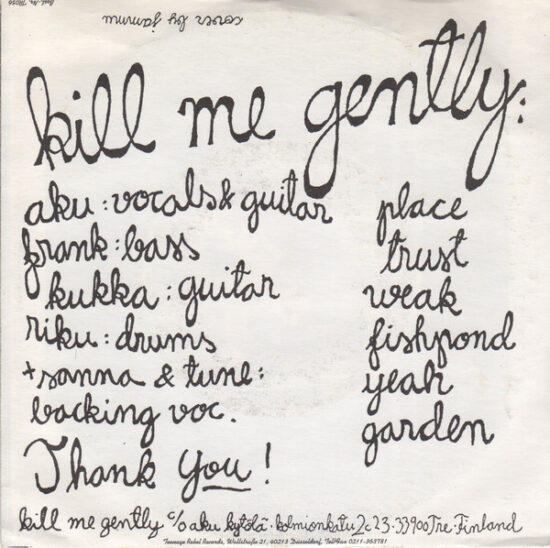 Best.-Nr. TR056
cover by jammu
kill me gently:
aku: vocals & guitar
frank: bass
kukka: guitar
riku: drums
+ sanna & tune:
backing voc.
Thank You!
place
trust
weak
fishpond
yeah
garden
kill me gently c/o aku kytölä · kolmionkatu 2c23 · 33900 Tre · Finland
Teenage Rebel Records, Wallstraße 21, 40213 Düsseldorf, Tel/Fax 0211-